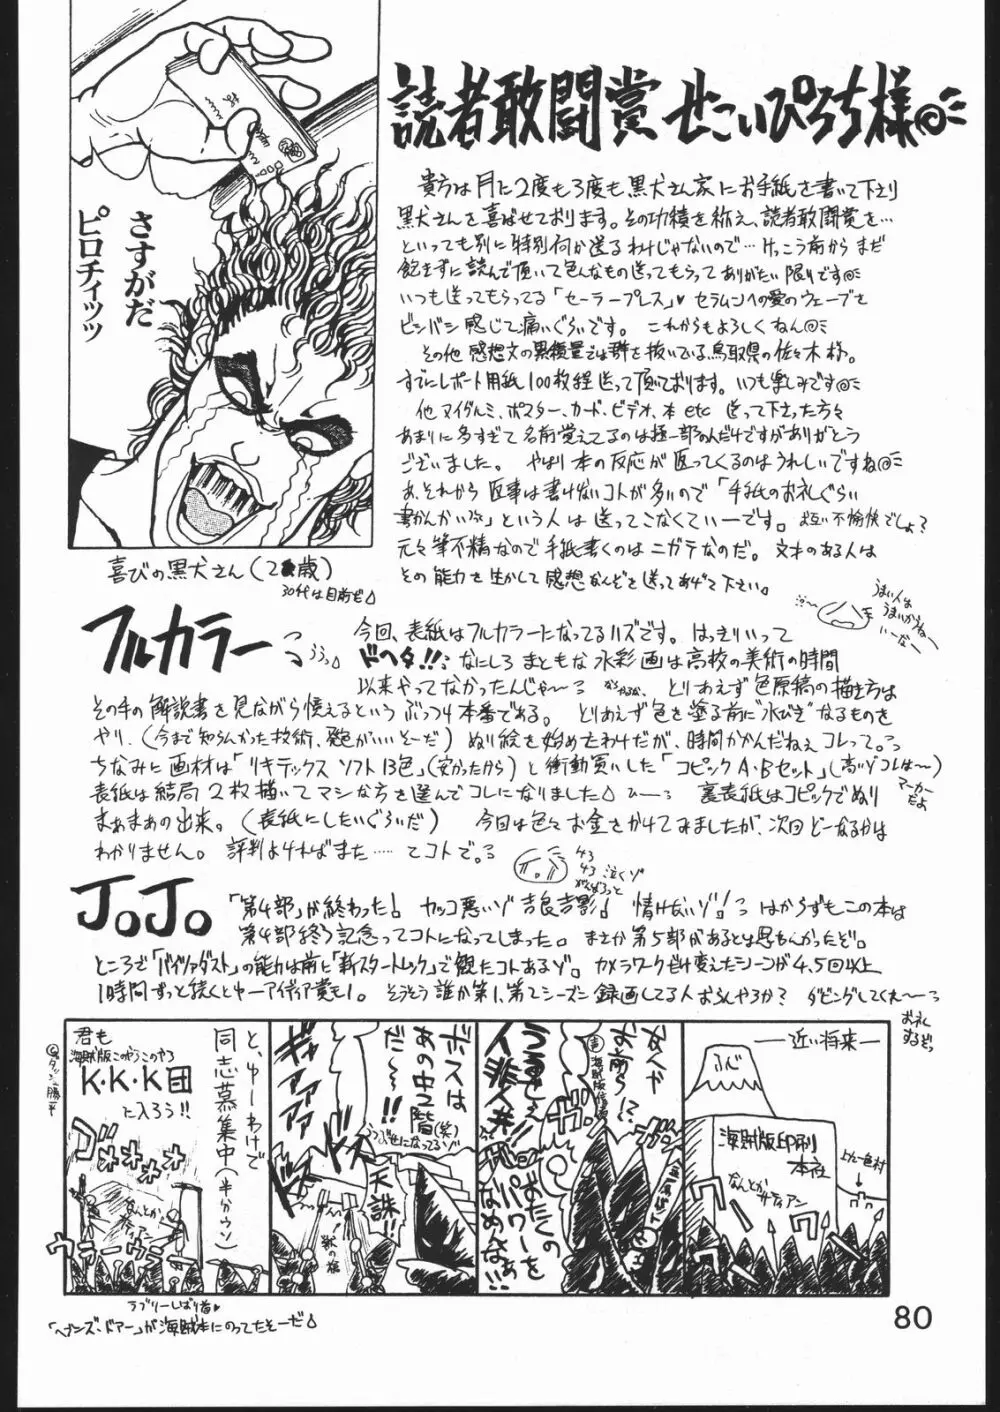 読者敢闘賞 せこいぴろち様
さすがだ
ピロチィッッ
喜びの黒犬さん(2 歳)
30代は目前だ
貴方は月に2度も3度も黒犬さん家にお手紙を書いて下さり
黒犬さんを喜ばせております。その功積を称え、読者敢闘賞を…
といっても別に特別何か送るわけじゃないので…けっこう前からまだ
飽きずに読んで頂いて色んなもの送ってもらってありがたい限りです
いつも送ってもらってる「セーラープレス」♥ セラムンへの愛のウェーブを
ビンバン感じて痛いぐらいです。 これからもよろしくねん
その他 感想文の累積量では群を抜いている鳥取県の佐々木様。
すでにレポート用紙100枚程送って頂いております。いつも楽しみです
他 ヌイグルミ、ポスター、カード、ビデオ、本etc 送って下さった方々
あまりに多すぎて名前覚えてるのは極一部なんだけですがありがとう
ございました。 やはり本の反応が返ってくるのはうれしいですね
あ、それから返事は書けないコトが多いので「手紙のお礼ぐらい
書かんかい」という人は送ってこなくていーです。お互い不愉快でしょ?
元々筆不精なので手紙書くのはニガテなのだ。 文才のある人は
その能力を生かして感想なんぞを送ってあげて下さい。
うまい人は
うまいからねー
いーなー
フルカラー
今回、表紙はフルカラーになってるハズです。はっきりいって
ドヘタ!! なにしろまともな水彩画は高校の美術の時間
以来やってなかったんじゃ〜 とりあえず色原稿の描き方は
その手の解説書を見ながら憶えるというぶっつけ本番である。 とりあえず色を塗る前に"水びき"なるものを
やり、(今まで知らんかった技術、発色がいいそーだ) ぬり絵を始めたわけだが、時間かかんだねぇコレって。
ちなみに画材は「リキテックス ソフト13色」(安かったから)と衝動買いした「コピックA・Bセット」(高いゾコレは〜)
マーカーだよ
表紙は結局2枚描いてマシな方を選んでコレになりました 裏表紙はコピックでぬり
まぁまぁの出来。(表紙にしたいぐらいだ) 今回は色々お金をかけてみましたが、次回どーなるかは
わかりません。 評判よければまた……てコトで。
43
43 泣くゾ
JoJo
「第4部」が終わった! カッコ悪いゾ 吉良吉影! 情けないゾ! はからずもこの本は
第4部終う記念ってコトになってしまった。まさか第5部があるとは思もんかったぞ。
ところで「バイツァダスト」の能力は前に「新スタートレック」で観たコトあるゾ。カメラワークだけ変えたシーンが4、5回以上
1時間ずっと続くとゆーアイディア賞もの。そうそう誰か第1、第2シーズン録画してる人おらんやろか? ダビングしてくれ〜
お礼するぞっ
—近い将来—
ふじ
海賊版印刷
本社
なんとか
ザ・ディアン
友人や
お前ら!?
うるせえ
人非人共
おたくの
パワーを
なめんなぁ!!
ボスは
あの中2階(笑)
だ〜!!
天誅!!
ギィァァァァ
と、ゆーわけで
同志募集中(半分ウソ)
君も
海賊版このやろこのやろ
K・K・K団
に入ろう!!
ゴォォォォ
ラブリーしばり首♥
「ヘブンズ・ドアー」が海賊本にのってたそーだ
80